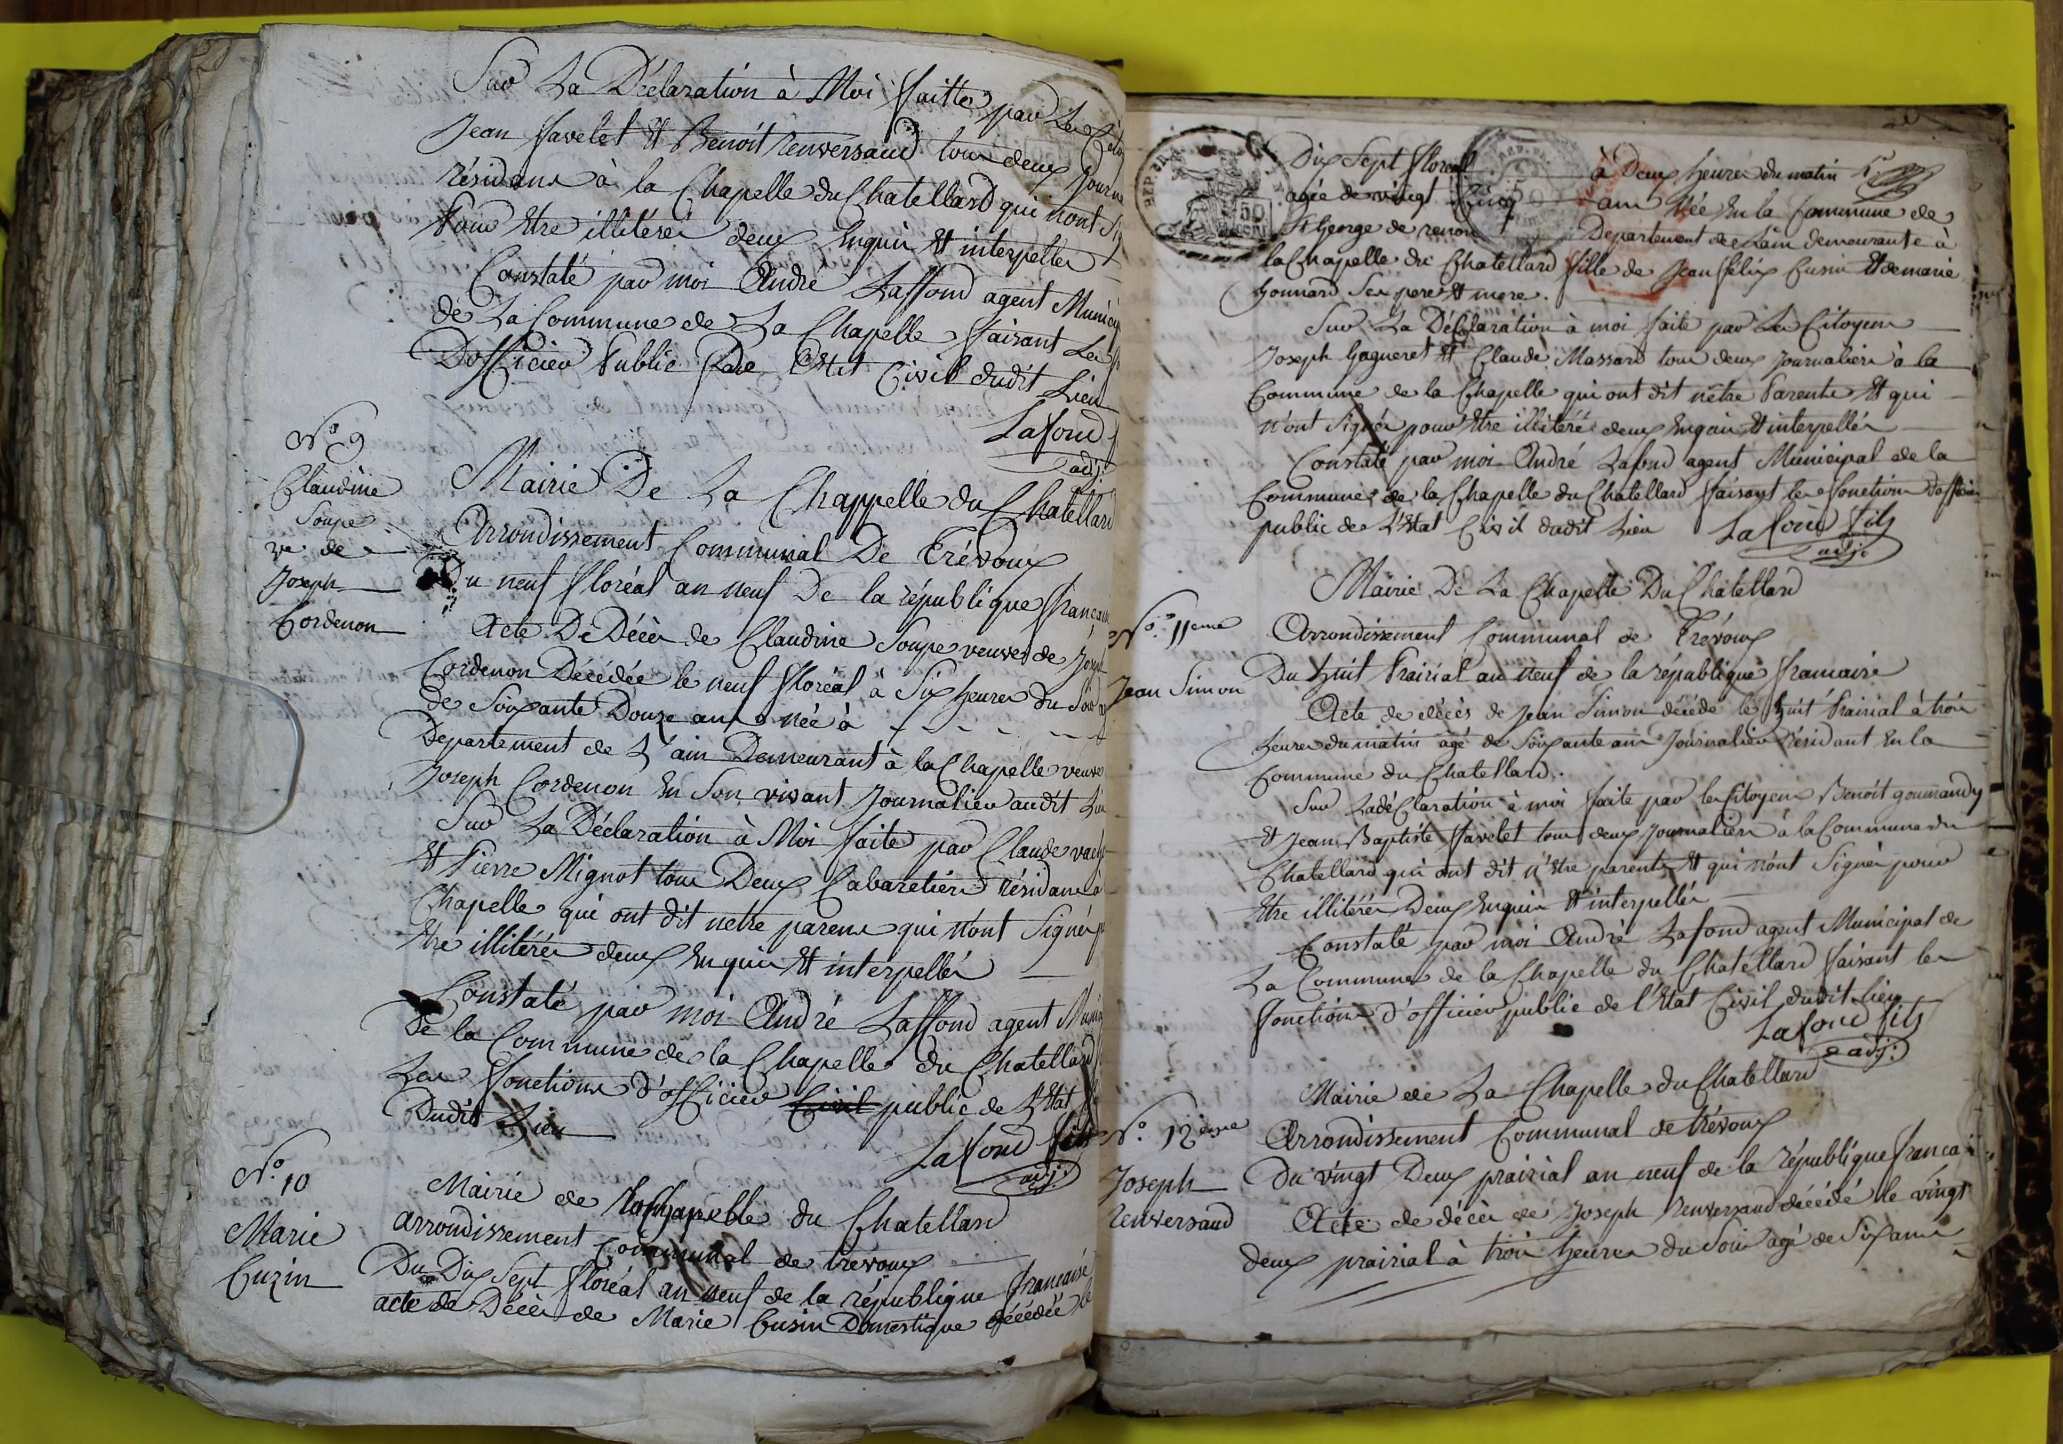 Sur La Déclaration à Moi faitte par Les
Jean favelet et Benoit renversaud tous deux
résidans à la Chapelle du Chatellard qui nont
Pour Etre illitérés deux Enquis et interpellés
Constaté par moi André Laffond agent
de La Commune de La Chapelle faisant Les
Dofficier Public De Etat Civil dudit Lieu
Lafond
adj.
N.º 9
Claudine
Soupe
ve. de
Joseph
Cordenon
Mairie De La Chappelle du Chatellard
Arrondissement Communal De Trévoux
Du neuf floréal an neuf De la république
Acte De Décès de Claudine Soupe veuve de
Cordenon Décédée le neuf floréal à Six heures du Soir
de Soixante Douze ans née à
Departement de L'ain Demeurant à la Chapelle veuve
Joseph Cordenon En Son vivant Journalier audit
Sur La Déclaration à Moi faite par Claude
et Pierre Mignot tous Deux Cabaretiers résidans à
Chapelle qui ont dit netre parens qui n'ont Signé
Etre illitérés deux Enquis et interpellés
Constaté par moi André Laffond agent
De la Commune de la Chapelle du Chatellard
Les fonctions d'officier Civil public de L'Etat
Dudit Lieu
Lafond fils
adj.
N.º 10
Marie
Cuzin
Mairie de la Chapelle du Chatellard
arrondissement Communal de trévoux
Du Dix Sept floréal an neuf de la république francaise
acte de Décès de Marie Cusin Domestique décédée le
Dix Sept floréal à Deux heures du matin
agée de vingt cinq ans Née En la Commune de
St George de renon Departement de Lain demeurante à
la Chapelle du Chatellard fille de Jean félix Cusin et de marie
Gonnard Ses pere et mere.
Sur La Déclaration à moi faite par Les Citoyens
Joseph Gagneret et Claude Massard tous deux Journaliers à la
Commune de la Chapelle qui ont dit nêtre Parents et qui
n'ont Signés pour Etre illitérés deux Enquis et interpellés
Constaté par moi André Lafond agent Municipal de la
Commune de la Chapelle du Chatellard faisant les fonctions
public de L'Etat Civil dudit Lieu
Lafond fils
adj.
N.º 11eme
Jean Simon
Mairie De La Chapelle Du Chatellard
Arrondissement Communal de Trévoux
Du huit Prairial an neuf de la république francaise
Acte de décès de Jean Simon décédé le huit Prairial à trois
heures du matin agé de Soixante ans Journalier résidant En la
Commune du Chatellard.
Sur La déClaration à moi faite par les Citoyens Benoit gourmandy
et Jean Baptiste favelet tous deux Journaliers à la Commune du
Chatellard qui ont dit n'être parents et qui n'ont Signés pour
Etre illitérés Deux Enquis et interpellés
Constaté par moi André Lafond agent Municipal de
La Commune de la Chapelle du Chatellard faisant les
fonctions d'officier public de l'Etat Civil dudit Lieu
Lafond fils
adj.
N.º 12eme
Joseph
renversaud
Mairie de La Chapelle du Chatellard
Arrondissement Communal de trévoux
Du vingt Deux prairial an neuf de la république
Acte de décès de Joseph renversaud décédé le vingt
deux prairial à trois heures du Soir agé de Six ans